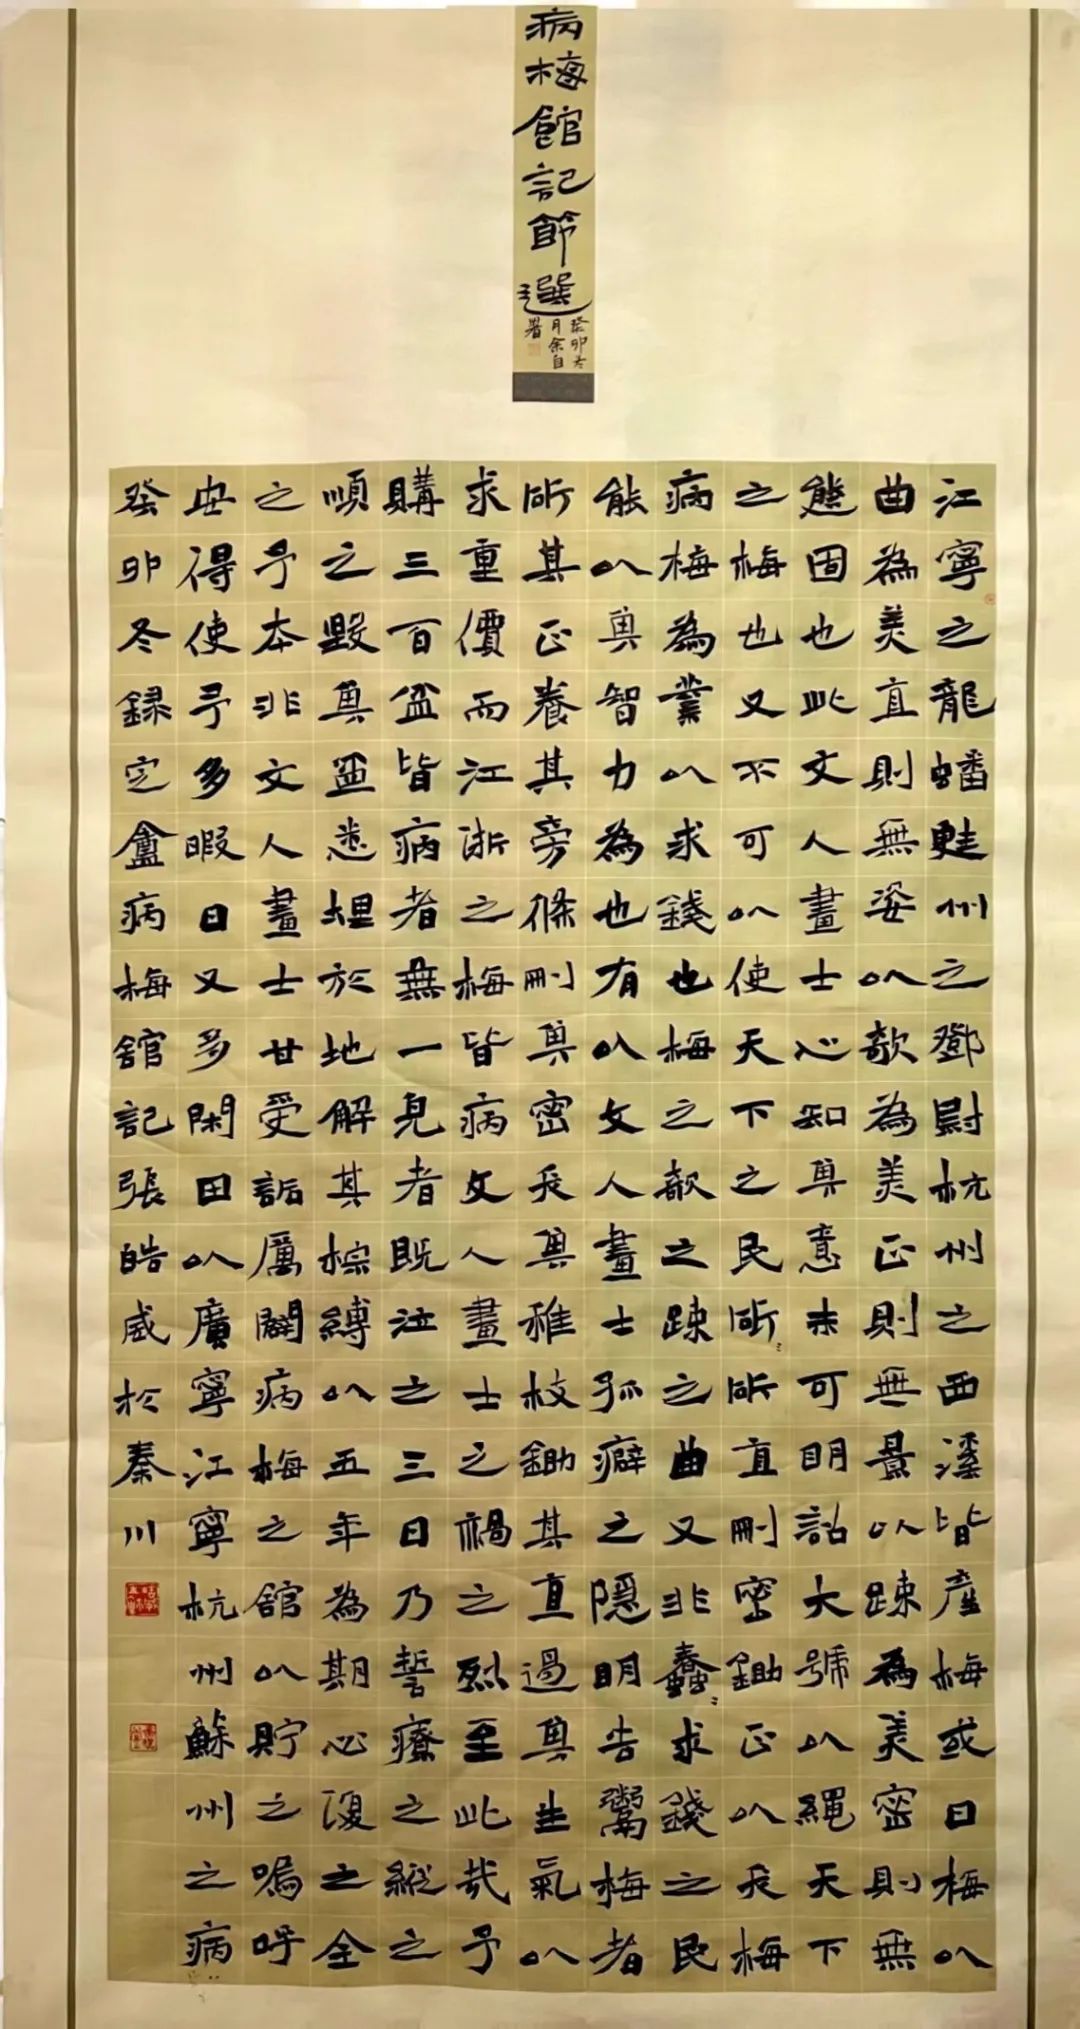 病梅館記節選
癸卯冬
月余自
署
江寧之龍蟠蘇州之鄧尉杭州之西溪皆產梅或曰梅以
曲為美直則無姿以欹為美正則無景以疎為美密則無
態固也此文人畫士心知其意未可明詔大號以繩天下
之梅也又不可以使天下之民斫斫直刪密鋤正以夭梅
病梅為業以求錢也梅之欹之疎之曲又非蠢求錢之民
能以其智力為也有以文人畫士孤癖之隱明告鬻梅者
斫其正養其旁條刪其密夭其稚枝鋤其直遏其生氣以
求重價而江浙之梅皆病文人畫士之禍之烈至此哉予
購三百盆皆病者無一完者既泣之三日乃誓療之縱之
順之毀其盆悉埋於地解其棕縛以五年為期必復之全
之予本非文人畫士甘受詬厲闢病梅之館以貯之嗚呼
安得使予多暇日又多閑田以廣寧江寧杭州蘇州之病
癸卯冬錄定盦病梅館記張皓威於秦川